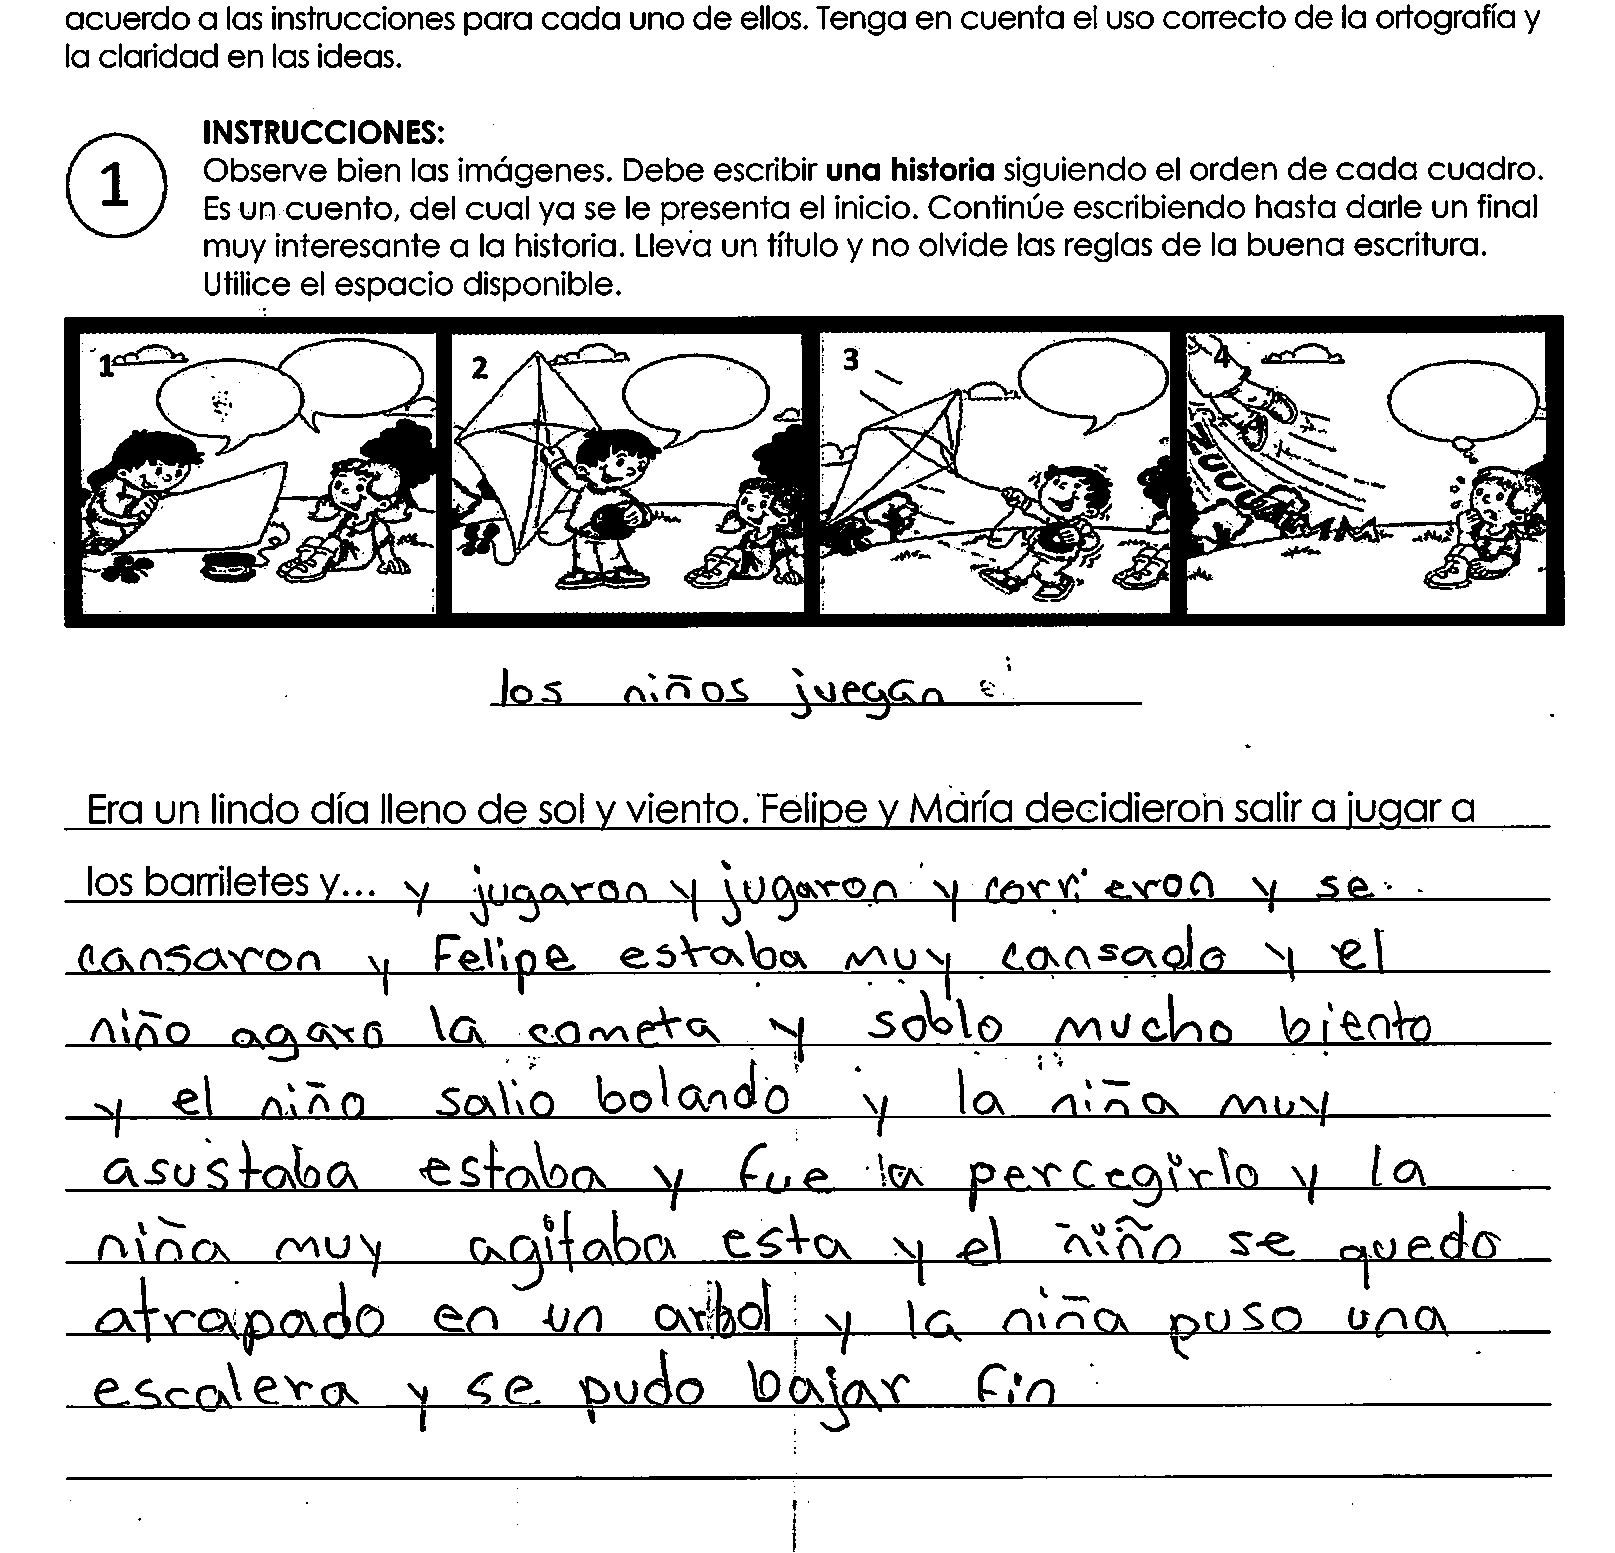 acuerdo a las instrucciones para cada uno de ellos. Tenga en cuenta el uso correcto de la ortografía y
la claridad en las ideas.
1
INSTRUCCIONES:
Observe bien las imágenes. Debe escribir una historia siguiendo el orden de cada cuadro.
Es un cuento, del cual ya se le presenta el inicio. Continúe escribiendo hasta darle un final
muy interesante a la historia. Lleva un título y no olvide las reglas de la buena escritura.
Utilice el espacio disponible.
1 2 3 4
los niños juegan
Era un lindo día lleno de sol y viento. Felipe y María decidieron salir a jugar a
los barriletes y... y jugaron y jugaron y corrieron y se
cansaron y Felipe estaba muy cansado y el
niño agaro la cometa y soblo mucho biento
y el niño salio bolando y la niña muy
asustaba estaba y fue la percegirlo y la
niña muy agitaba esta y el niño se quedo
atrapado en un arbol y la niña puso una
escalera y se pudo bajar fin